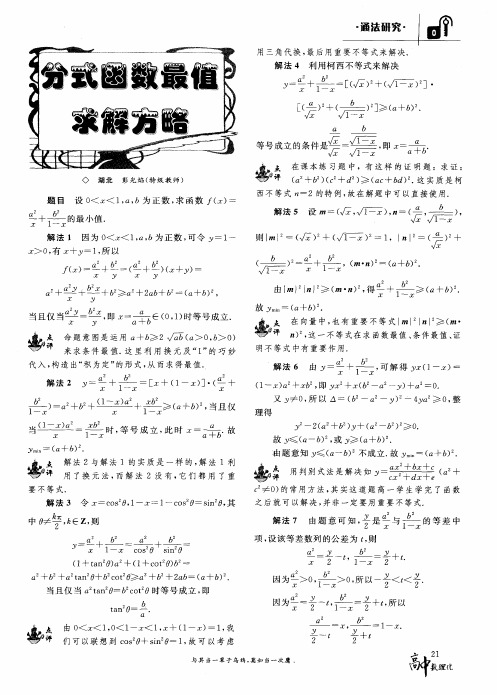 ·通法研究·
分式函数最值
求解方略
◇ 湖北 彭光焰(特级教师)
题目 设 0<x<1,a,b 为正数,求函数 f(x)=
a²/x + b²/(1-x) 的最小值.
解法 1 因为 0<x<1,a,b 为正数,可令 y=1-
x>0,有 x+y=1,所以
f(x)=a²/x+b²/y=(a²/x+b²/y)(x+y)=
a²+a²y/x+b²x/y+b²≥a²+2ab+b²=(a+b)²,
当且仅当a²y/x=b²x/y,即 x=a/(a+b)∈(0,1)时等号成立.
点评 命题意图是运用 a+b≥2√ab(a>0,b>0)
来求条件最值.这里利用换元及“1”的巧妙
代入,构造出“积为定”的形式,从而求得最值.
解法 2 y=a²/x+b²/(1-x)=[x+(1-x)]·(a²/x+
b²/(1-x))=a²+b²+(1-x)a²/x+xb²/(1-x)≥(a+b)²,当且仅
当(1-x)a²/x=xb²/(1-x)时,等号成立,此时 x=a/(a+b).故
y_min=(a+b)².
点评 解法 2 与解法 1 的实质是一样的,解法 1 利
用了换元法,而解法 2 没有,它们都用了重
要不等式.
解法 3 令 x=cos²θ,1-x=1-cos²θ=sin²θ,其
中 θ≠kπ/2,k∈Z,则
y=a²/x+b²/(1-x)=a²/cos²θ+b²/sin²θ=
(1+tan²θ)a²+(1+cot²θ)b²=
a²+b²+a²tan²θ+b²cot²θ≥a²+b²+2ab=(a+b)².
当且仅当 a²tan²θ=b²cot²θ 时等号成立,即
tan²θ=b/a.
点评 由 0<x<1,0<1-x<1,x+(1-x)=1,我
们可以联想到 cos²θ+sin²θ=1,故可以考虑
用三角代换,最后用重要不等式来解决.
解法 4 利用柯西不等式来解决
y=a²/x+b²/(1-x)=[(√x)²+(√(1-x))²]·
[(a/√x)²+(b/√(1-x))²]≥(a+b)².
等号成立的条件是(a/√x)/√x=(b/√(1-x))/√(1-x),即 x=a/(a+b).
点评 在课本练习题中,有这样的证明题:求证:
(a²+b²)(c²+d²)≥(ac+bd)².这实质是柯
西不等式 n=2 的特例,故在解题中可以直接使用.
解法 5 设 m=(√x,√(1-x)),n=(a/√x,b/√(1-x)),
则|m|²=(√x)²+(√(1-x))²=1,|n|²=(a/√x)²+
(b/√(1-x))²=a²/x+b²/(1-x),(m·n)²=(a+b)².
由|m|²|n|²≥(m·n)²,得a²/x+b²/(1-x)≥(a+b)².
故 y_min=(a+b)².
点评 在向量中,也有重要不等式|m|²|n|²≥(m·
n)²,这一不等式在求函数最值、条件最值、证
明不等式中有重要作用.
解法 6 由 y=a²/x+b²/(1-x),可解得 yx(1-x)=
(1-x)a²+xb²,即 yx²+x(b²-a²-y)+a²=0.
又 y≠0,所以 Δ=(b²-a²-y)²-4ya²≥0,整
理得
y²-2(a²+b²)y+(a²-b²)²≥0.
故 y≤(a-b)²,或 y≥(a+b)².
由题意知 y≤(a-b)² 不成立.故 y_min=(a+b)².
点评 用判别式法是解决如 y=(ax²+bx+c)/(cx²+dx+e)(a²+
c²≠0)的常用方法,其实这道题高一学生学完了函数
之后就可以解决,并非一定要用重要不等式.
解法 7 由题意可知,y/2是a²/x与b²/(1-x)的等差中
项,设该等差数列的公差为 t,则
a²/x=y/2-t,b²/(1-x)=y/2+t.
因为a²/x>0,b²/(1-x)>0,所以-y/2<t<y/2.
因为a²/x=y/2-t,b²/(1-x)=y/2+t,所以
a²/(y/2-t)=x,b²/(y/2+t)=1-x.
与其当一辈子乌鸦,莫如当一次鹰.
高中数理化
21